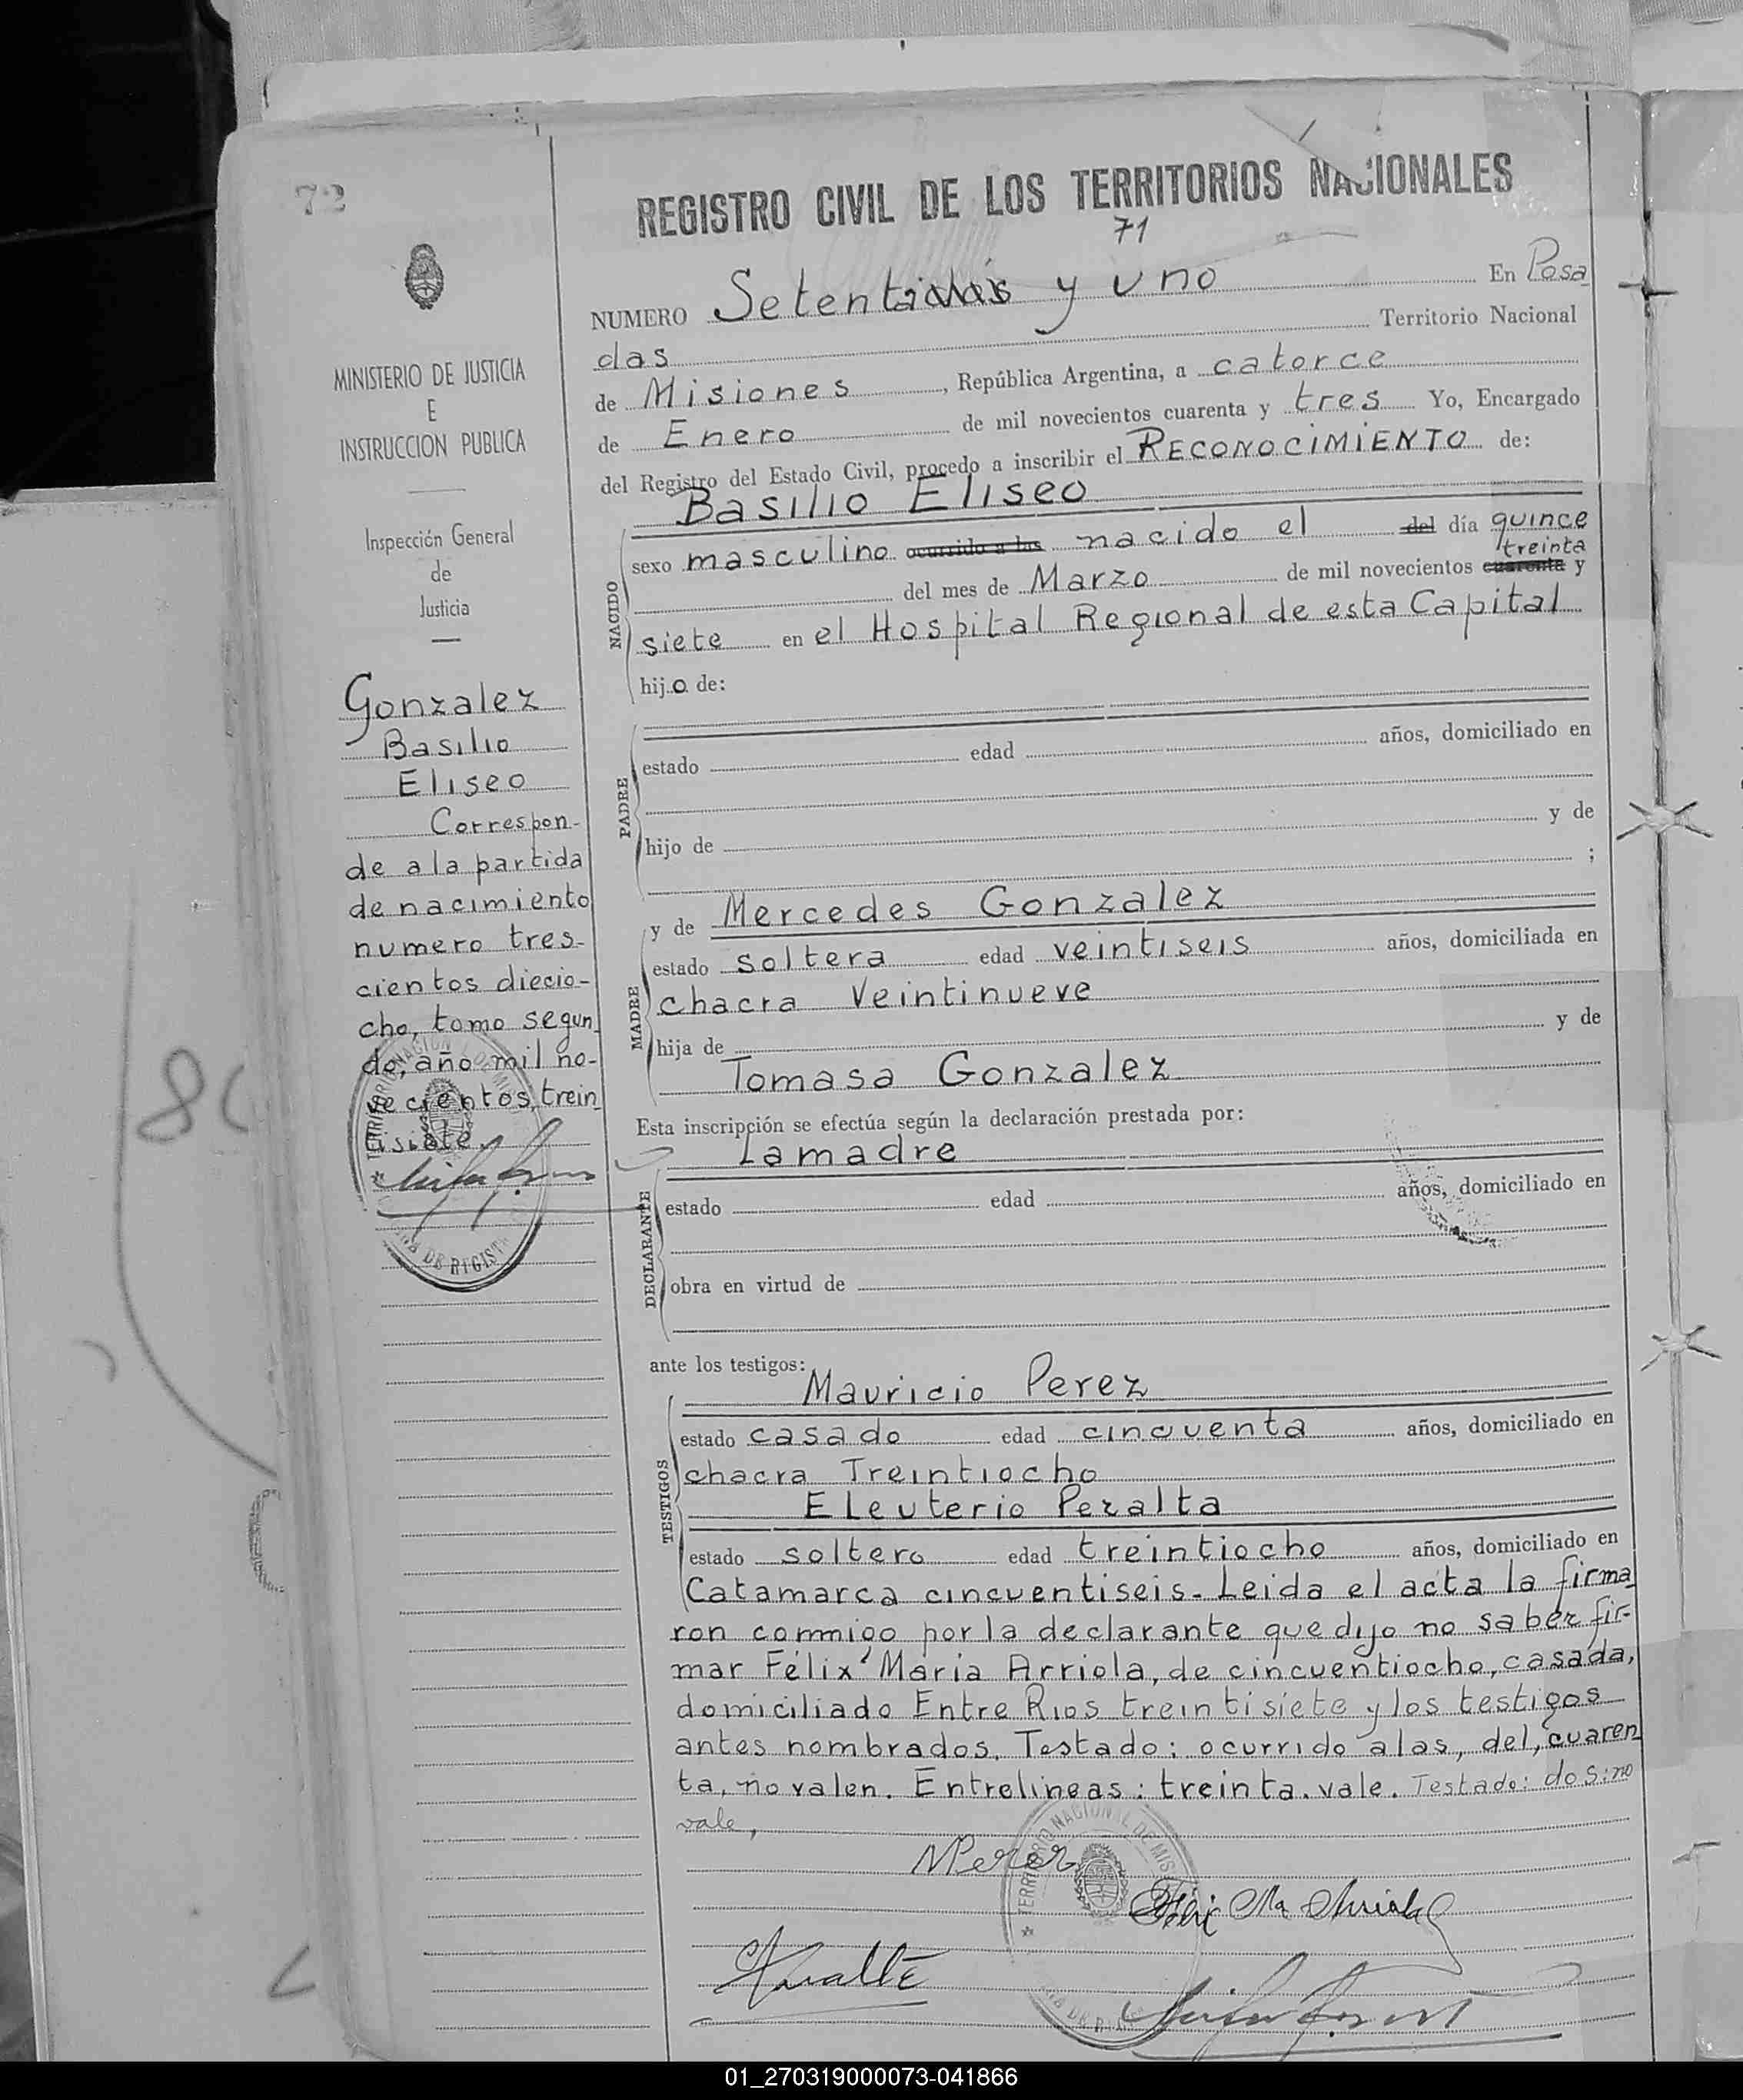 72
REGISTRO CIVIL DE LOS TERRITORIOS NACIONALES
71
NUMERO Setentidos y uno En Posa
das Territorio Nacional
de Misiones, República Argentina, a catorce
de Enero de mil novecientos cuarenta y tres Yo, Encargado
del Registro del Estado Civil, procedo a inscribir el RECONOCIMIENTO de:
Basilio Eliseo
NACIDO
sexo masculino ocurrido a las nacido el del día quince
treinta
del mes de Marzo de mil novecientos cuarenta y
siete en el Hospital Regional de esta Capital
hijo de:
PADRE
estado edad años, domiciliado en
hijo de y de
;
MADRE
y de Mercedes Gonzalez
estado soltera edad veintiseis años, domiciliada en
chacra Veintinueve
hija de y de
Tomasa Gonzalez
Esta inscripción se efectúa según la declaración prestada por:
La madre
DECLARANTE
estado edad años, domiciliado en
obra en virtud de
ante los testigos:
TESTIGOS
Mauricio Perez
estado casado edad cincuenta años, domiciliado en
chacra Treintiocho
Eleuterio Peralta
estado soltero edad treintiocho años, domiciliado en
Catamarca cincuentiseis. Leida el acta la firma
ron conmigo por la declarante que dijo no saber fir-
mar Félix María Arriola, de cincuentiocho, casada,
domiciliado Entre Rios treintisiete y los testigos
antes nombrados. Testado: ocurrido a las, del, cuaren
ta, no valen. Entrelineas: treinta. vale. Testado: dos: no
vale,
MPerez
TERRITORIO NACIONAL DE MIS
MINISTERIO DE JUSTICIA
E
INSTRUCCION PUBLICA
Inspección General
de
Justicia
Gonzalez
Basilio
Eliseo
Correspon-
de a la partida
de nacimiento
numero tres-
cientos diecio-
cho, tomo segun
do, año mil no-
vecientos, trein
tisiete.
TERRITORIO NACIONAL DE MIS
DE REGIST
01_270319000073-041866